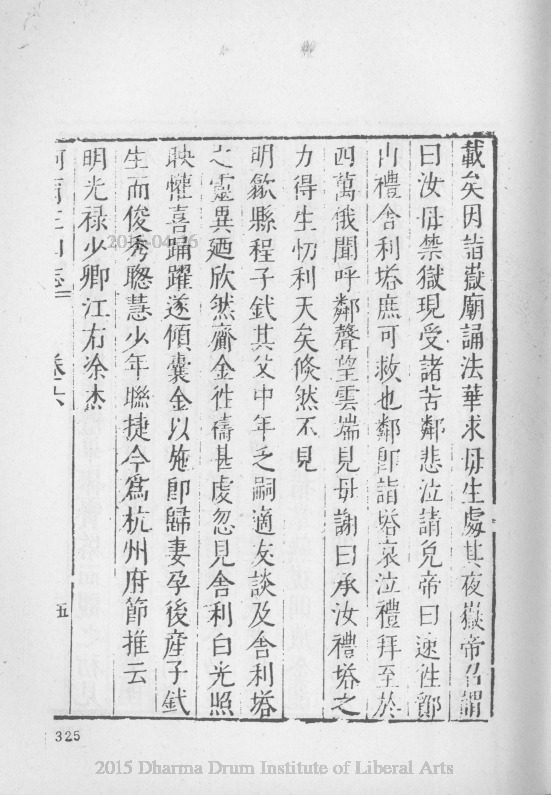 載矣因詣嶽廟誦法華求毋生處其夜嶽帝召謂
曰汝毋禁獄現受諸苦鄰悲泣請免帝曰速徃鄮
山禮舍利塔庶可救也鄰卽詣塔哀泣禮拜至於
四萬俄聞呼鄰聲望雲端見毋謝曰承汝禮塔之
力得生忉利天矣倐然不見
明歙縣程子釴其父中年乏嗣適友談及舍利塔
之靈異廼欣然齎金徃禱甚虔忽見舍利白光照
映懽喜踊躍遂傾囊金以施卽歸妻孕後産子釴
生而俊秀聰慧少年聯捷今爲杭州府節推云
明光禄少卿江右涂杰
阿育王山志 卷六 五
325
2015 Dharma Drum Institute of Liberal Arts